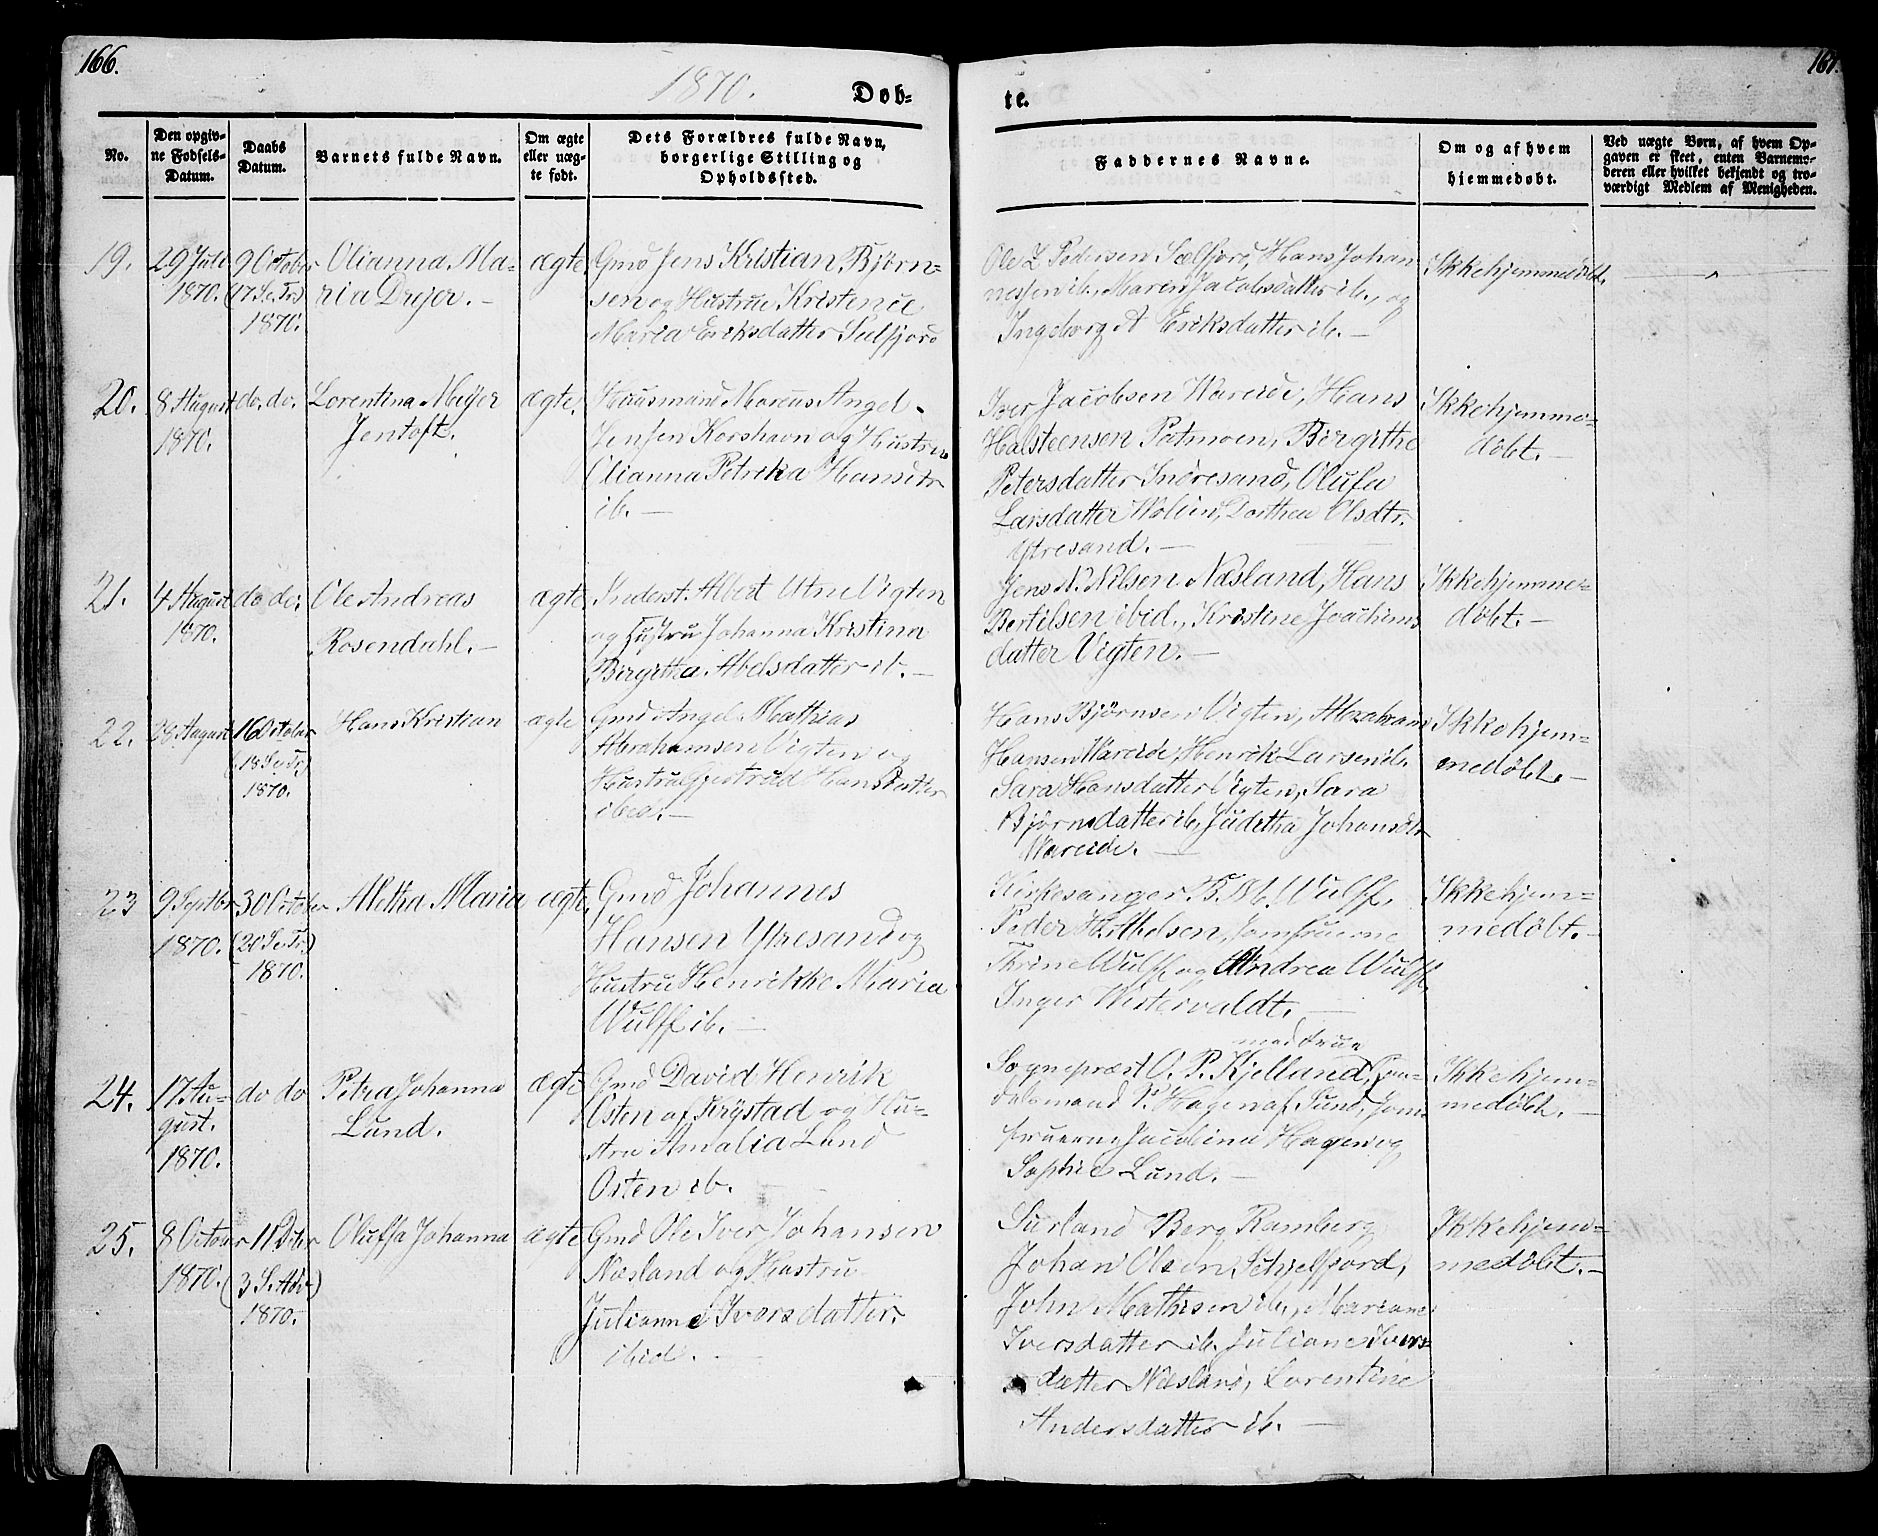 166.
1870.
Døb-
te.
167.
No.
Den opgiv-
ne Fødsels-
Datum.
Daabs
Datum.
Barnets fulde Navn.
Om ægte
eller uæg-
te født.
Dets Forældres fulde Navn,
borgerlige Stilling og
Opholdssted.
Faddernes Navne.
Om og af hvem
hjemmedøbt.
Ved uægte Børn, af hvem Op-
gaven er skeet, enten Barnemo-
deren eller hvilket bekjendt og tro-
værdigt Medlem af Menigheden.
19.
29 Juli
1870.
9 October
(17 S. e. Tr.)
1870.
Olianna Ma-
ria Dreyer. -
ægte
Gmd Jens Kristian Bjørn-
sen og Hustrue Kristence
Maria Eriksdatter Selfjord
Ole Z Pedersen Selfjord, Hans Johan
nessen ib., Maren Jacobsdatter ib., og
Ingeborg A Eriksdatter ib. -
Ikkehjemmedøbt.
20.
8 August
1870.
do. do.
Lorentina Meyer
Jentoft.
ægte.
Huusmand Marcus Angel
Jensen Korshavn og Hustru
Olianna Petrika Hansdtr
ib. -
Iver Jacobsen Wareide, Hans
Halsteensen Patmoen, Birgithe
Petersdatter Indresand, Olufa
Larsdatter Wolün, Dorthea Olsdtr.
Ytresand. -
Ikkehjemme-
døbt. -
21.
4 August
1870.
do do.
Ole Andreas
Rosendahl. -
ægte
Inderst. Albert Utne Vigten
og Hustru Johanna Kristina
Birgitha Abelsdatter ib. -
Jens N. Nilsen Næsland, Hans
Bertilsen ibid., Kristine Joachims
datter Vigten. -
Ikkehjemme-
døbt. -
22.
28 August
16 October
(18 S. e. Tr.)
1870.
Hans Kristian
ægte
Gmd Angel Mathias
Abrahamsen Vigten og
Hustru Gjertrud Hansdatter
ibid. -
Hans Bjørnsen Vigten, Abraham
Hansen Wareide, Henrik Larsen ib.
Sara Hansdatter Vigten, Sara
Bjørnsdatter ib, Juditha Johansdtr
Wareide. -
Ikkehjem-
medøbt. -
23
9 Septbr
1870.
30 October
(20 S. e. Tr.)
1870.
Aletha Maria
ægte,
Gmd Johannes
Hansen Ytresand og
Hustru Henrikke Maria
Wulff ib. -
Kirkesanger B. M. Wulff,
Peder H. Abelsen, Jomfruerne
Thrine Wulff og Andrea Wulff
Inger Westervaldt. -
Ikkehjem-
medøbt. -
24.
17. Au-
gust.
1870.
do do
Petra Johanna
Lund.
ægte
Gmd David Henrik
Osten af Krystad og Hu-
stru Amalia Lund
Osten ib. -
med Frue
Sognepræst O. P. Kjelland, Han-
delsmand P. Hagen af Sund, Jom-
fruerne Jacobina Hagen og
Sophie Lund. -
Ikkehjem-
medøbt. -
25.
8 October
1870.
11 Dcber
(3 S. Adv)
1870.
Oluffa Johanna
ægte
Gmd Ole Iver Johansen
Næsland og Hustru
Julianne Iversdatter.
ibid. -
Berg Ramberg
Johan Olsen Schjelfjord,
John Mathisen ib., Mariane
Iversdatter ib. Juliane Ivers-
datter Næsland, Lorentine
Andersdatter ib. -
Ikkehjem-
medøbt. -